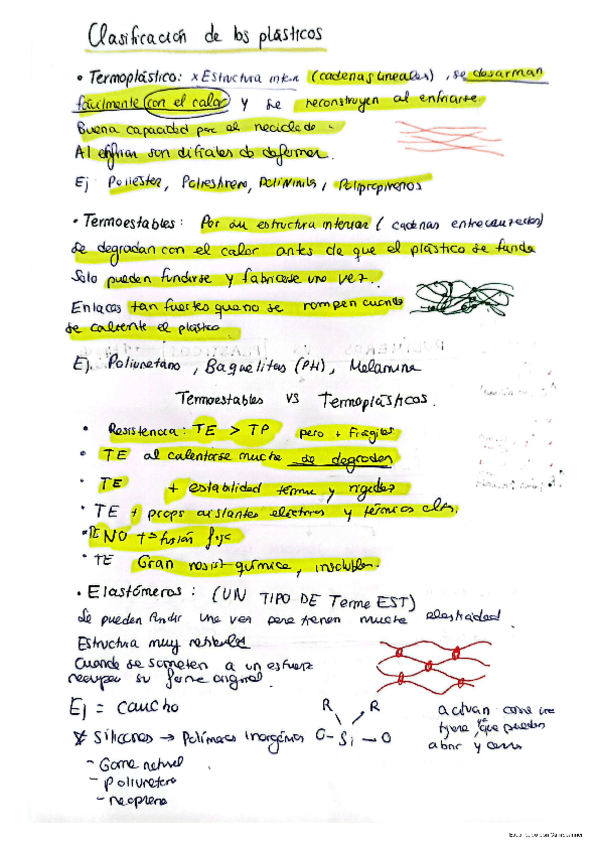 Clasificación de los plásticos
• Termoplástico: x Estructura inter (cadenas lineales), se desarman
fácilmente con el calor y se reconstruyen al enfriarse.
Buena capacidad para el reciclado.
Al enfriar son difíciles de deformar.
Ej Poliester, Poliestireno, Polipropirenos
• Termoestables: Por su estructura interna (cadenas entrecruzados)
se degradan con el calor antes de que el plástico se funda
Solo pueden fundirse y fabricarse una vez.
Enlaces tan fuertes que no se rompen cuando
se caliente el plástico
Ej. Poliuretano, Baquelitas (PH), Melamina
Termoestables VS Termoplásticos.
• Resistencia: TE > TP pero + Frágiles
• TE al calentarse mucho se degradan
• TE + estabilidad térmic y rigidez
• TE + props aislantes eléctricos y térmicos
• TE NO tª fusión fija
• TE Gran resist química, insolubles.
• Elastómeros: (UN TIPO DE Termo EST)
Se pueden fundir una vez pero tienen mucha elasticidad
Estructura muy
Cuando se someten a un esfuerzo
recuper su forma original.
Ej = caucho
R R
O-Si-O
actuan como una
que pueden
abrir y
* Silicones → Polímeros Inorgánicos
- Goma natural
- poliuretano
- neopreno